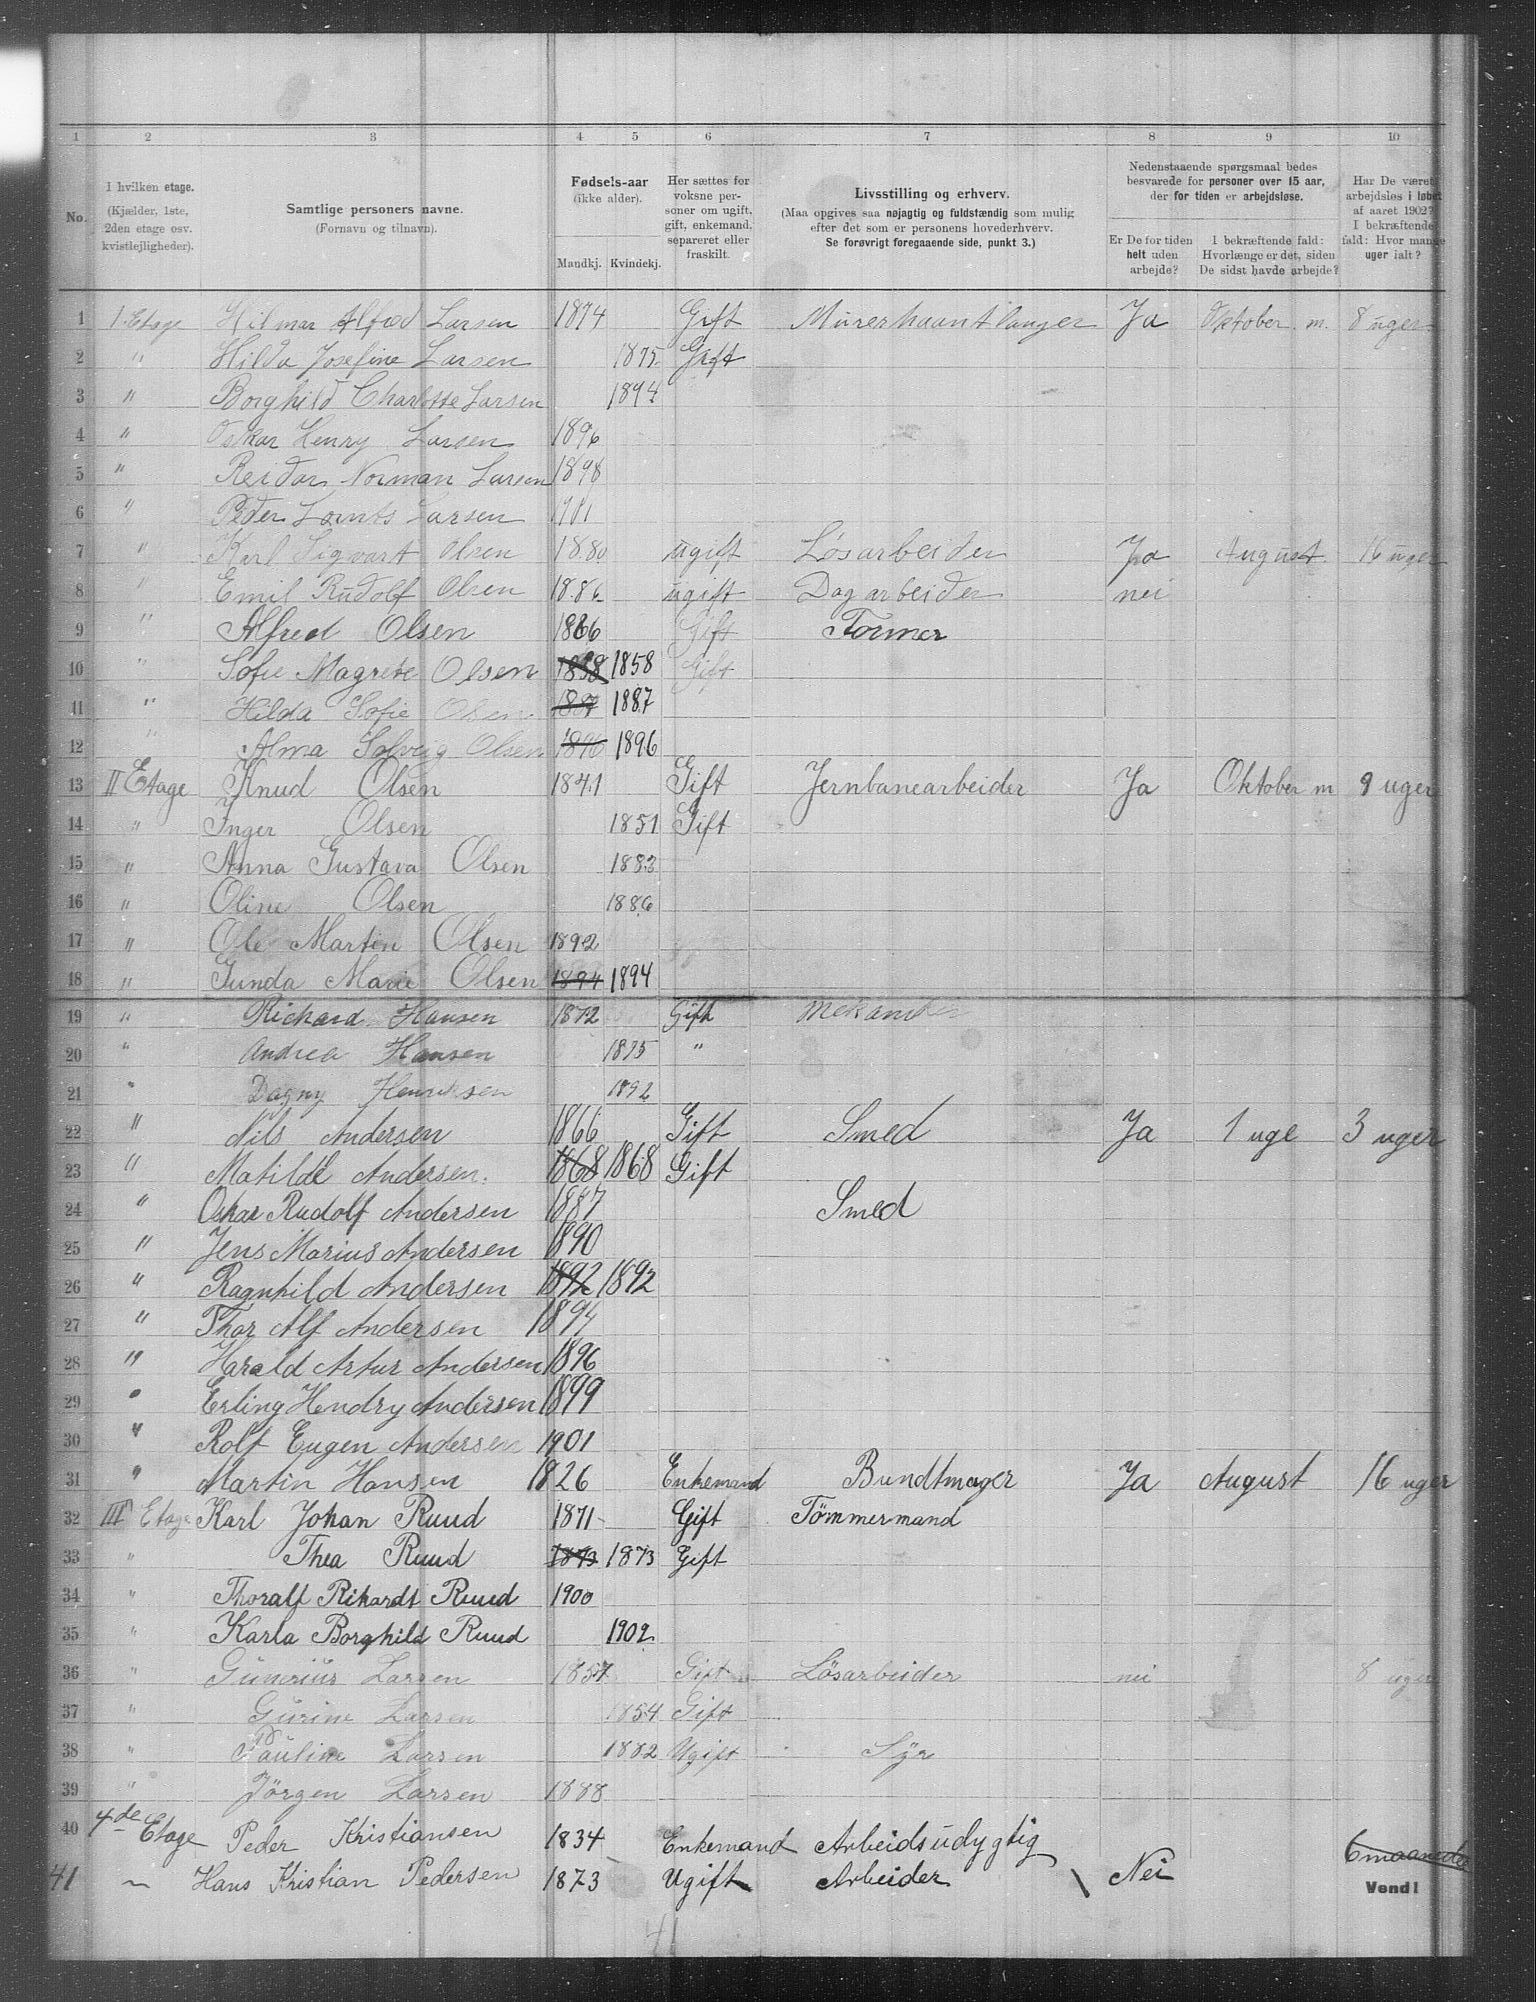 1 2 3 4 5 6 7 8 9 10
No.
I hvilken etage.
(Kjælder, 1ste,
2den etage osv.
kvistlejligheder).
Samtlige personers navne.
(Fornavn og tilnavn).
Fødsels-aar
(ikke alder).
Mandkj. Kvindekj.
Her sættes for
voksne per-
soner om ugift,
gift, enkemand,
separeret eller
fraskilt.
Livsstilling og erhverv.
(Maa opgives saa nøjagtig og fuldstændig som mulig
efter det som er personens hovederhverv.
Se forøvrigt foregaaende side, punkt 3.)
Nedenstaaende spørgsmaal bedes
besvarede for personer over 15 aar,
der for tiden er arbejdsløse.
Er De for tiden
helt uden
arbejde?
I bekræftende fald:
Hvorlænge er det, siden
De sidst havde arbejde?
Har De været
arbejdsløs i løbet
af aaret 1902?
I bekræftende
fald: Hvor mange
uger ialt?
1 1. Etage Hilmar Alfred Larsen 1874 Gift Murerhaantlanger Ja Oktober m. 8 uger
2 " Hilda Josefine Larsen 1875 Gift
3 " Borghild Charlotte Larsen 1894
4 " Oskar Henry Larsen 1896
5 " Reidar Norman Larsen 1898
6 " Peder Larsen 1901
7 " Karl Sigvart Olsen 1880 ugift Løsarbeider Ja August 16 uger
8 " Emil Rudolf Olsen 1886 ugift Dagarbeider nei
9 " Alfred Olsen 1866 Gift Former
10 " Sofie Magrete Olsen 1858 1858 Gift
11 " Hilda Sofie Olsen 1887 1887
12 " Alma Solveig Olsen 1896 1896
13 II Etage Knud Olsen 1841 Gift Jernbanearbeider Ja Oktober m 9 uger
14 " Inger Olsen 1851 Gift
15 " Anna Gustava Olsen 1883
16 " Oline Olsen 1886
17 " Ole Martin Olsen 1892
18 " Gunda Marie Olsen 1894 1894
19 " Richard Hansen 1872 Gift Mekaniker
20 " Andrea Hansen 1875 "
21 " Dagny Henriksen 1892
22 " Nils Andersen 1866 Gift Smed Ja 1 uge 3 uger
23 " Matilde Andersen. 1868 1868 Gift
24 " Oskar Rudolf Andersen 1887 Smed
25 " Jens Marius Andersen 1890
26 " Ragnhild Andersen 1892 1892
27 " Thor Alf Andersen 1894
28 " Harald Artur Andersen 1896
29 " Erling Hendry Andersen 1899
30 " Rolf Eugen Andersen 1901
31 " Martin Hansen 1826 Enkemand Bundtmager Ja August 16 uger
32 III Etage Karl Johan Ruud 1871 Gift Tömmermand
33 " Thea Ruud 1873 1873 Gift
34 " Thoralf Rikardt Ruud 1900
35 " Karla Borghild Ruud 1902
36 " Larsen 1857 Gift Lösarbeider nei 8 uger
37 " Gurine Larsen 1854 Gift
38 " Pauline Larsen 1882 Ugift Syr
39 " Jörgen Larsen 1888
40 4de Etage Peder Kristiansen 1834 Enkemand Arbeidsudygtig 6 maaneder
41 — Hans Kristian Pedersen 1873 Ugift Arbeider Nei
Vend!
41